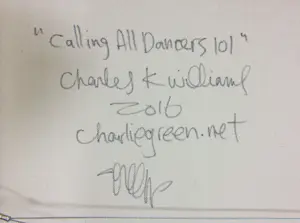 "Calling All Dancers 101"
Charles K Williams
2016
charliegreen.net